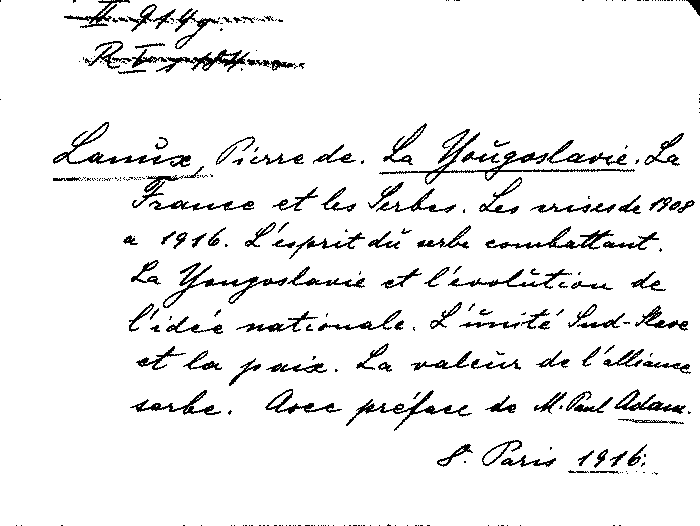 II 914g.
Lanux, Pierre de. La Yougoslavie. La
France et les Serbes. Les crises de 1908
a 1916. L'esprit du serbe combattant.
La Yougoslavie et l'évolution de
l'idée nationale. L'unité Sud-Slave
et la paix. La valeur de l'alliance
serbe. Avec préface de M. Paul Adam.
8. Paris 1916.